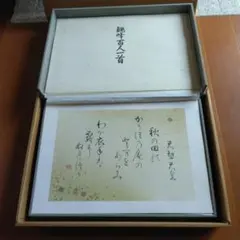 百人一首
天智天皇
秋の田の
かりほの庵の
わが衣手は
露に
ぬれつゝ